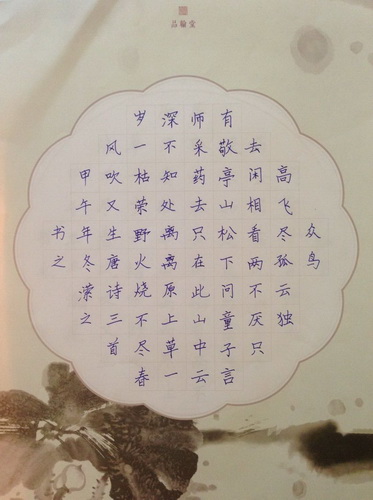 品翰堂
众鸟
高飞尽孤云独
去闲相看两不厌只
有敬亭山松下问童子言
师采药去只在此山中云
深不知处离离原上草一
岁一枯荣野火烧不尽春
风吹又生唐诗三首
甲午年冬之
书之